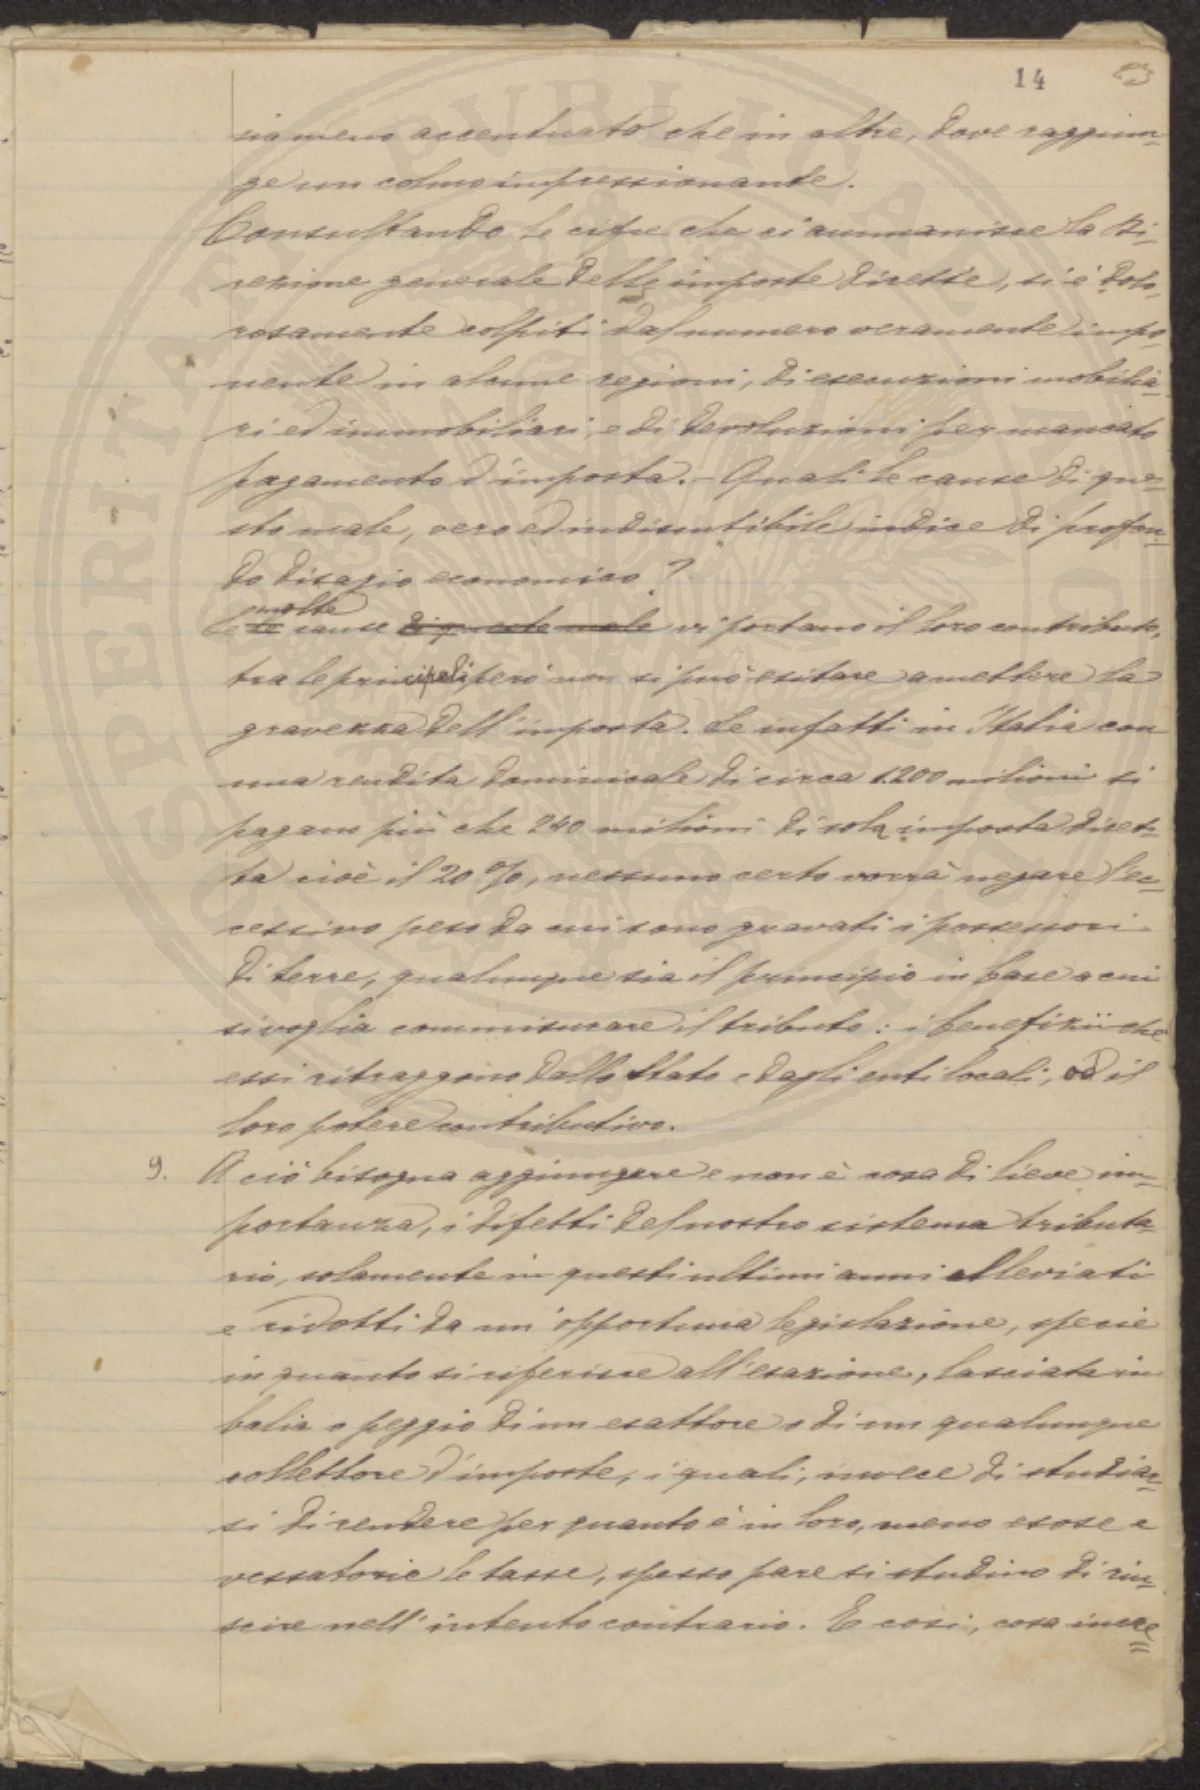 14
sia meno accentuato che in altre, dove raggiun=
ge un colmo impressionante.
Consultando le cifre che ci ammanisce la Di=
rezione generale delle imposte dirette, si è dolo=
rosamente colpiti dal numero veramente impo=
nente in alcune regioni, di esecuzioni mobilia=
ri ed immobiliari, e di devoluzioni per mancato
pagamento d'imposta. - Quali le cause di que=
sto male, vero ed indiscutibile indice di profon=
do disagio economico?
molte
cause di questo male vi portano il loro contributo,
tra le principali però non si può esitare a mettere la
gravezza dell'imposta. Se infatti in Italia con
una rendita dominicale di circa 1.200 milioni si
pagano più che 240 milioni di sola imposta diret=
ta cioè il 20 %, nessuno certo vorrà negare l'ec=
cessivo peso da cui sono gravati i possessori
di terre, qualunque sia il principio in base a cui
si voglia commisurare il tributo: i benefizii che
essi ritraggono dallo Stato e dagli enti locali, od il
loro potere contributivo.
9. A ciò bisogna aggiungere e non è cosa di lieve im=
portanza, i difetti del nostro sistema tributa=
rio, solamente in questi ultimi anni alleviati
e ridotti da un'opportuna legislazione, specie
in quanto si riferisce all'esazione, lasciata in
balia o peggio di un esattore o di un qualunque
collettore d'imposte, i quali, invece di studiar=
si di rendere per quanto è in loro, meno esose e
vessatorie le tasse, spesso pare si studino di riu=
scire nell'intento contrario. E così, cosa incre=
SPERITATI PUBLICAE